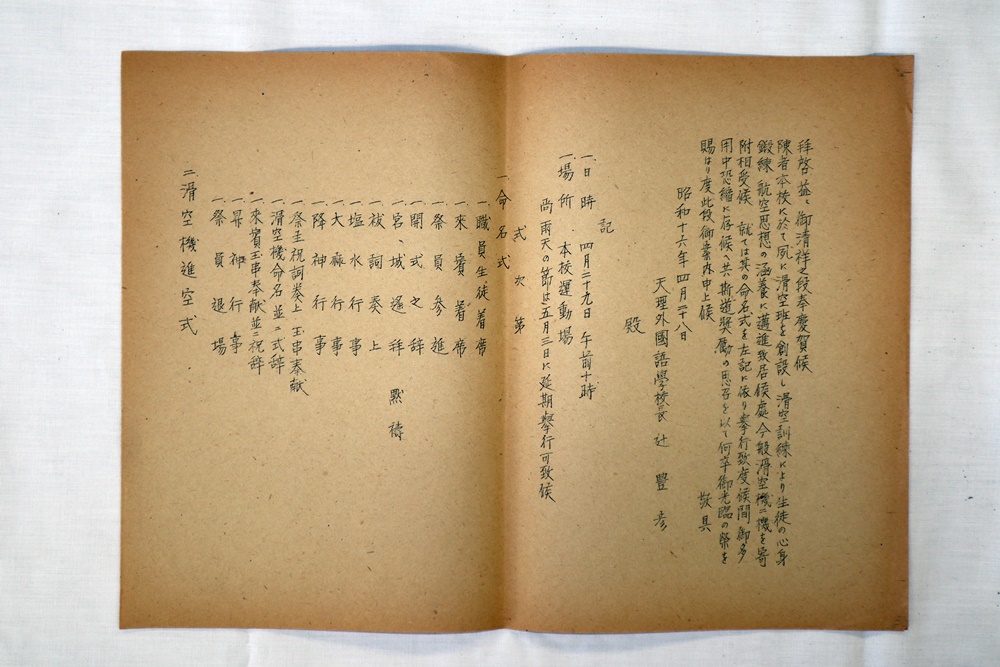 拝啓 益々御清祥之段奉慶賀候
陳者本校に於て夙に滑空班を創設し滑空訓練により生徒の心身
鍛練 航空思想の涵養に邁進致居候處今般滑空機二機を寄
附相受候 就ては其の命名式を左記に依り擧行致度候間御多
用中恐縮に存候へ共斯道奨励の思召を以て何卒御光臨の榮を
賜はり度此段御案内申上候 敬具
昭和十六年四月二十八日
天理外國語學校長 辻 豊彦
殿
記
一、日時 四月二十九日 午前十時
一、場所 本校運動場
尚雨天の節は五月三日に延期擧行可致候
式次第
一命名式
一、職員生徒着席
一、來賓着席
一、祭員参進
一、開式之辞
一、宮城遙拜 默禱
一、祓詞奏上
一、塩水行事
一、大麻行事
一、降神行事
一、祭主祝詞奏上 玉串奉献
一、滑空機命名並ニ式辞
一、來賓玉串奉献並ニ祝辞
一、昇神行事
一、祭員退場
二滑空機進空式